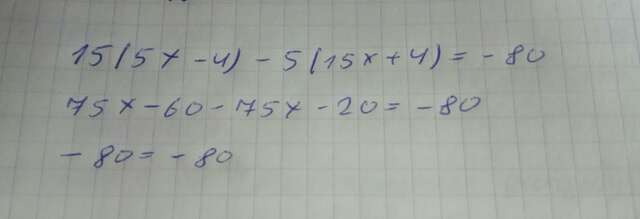 15(5x-4)-5(15x+4)=-80
75x-60-75x-20=-80
-80=-80